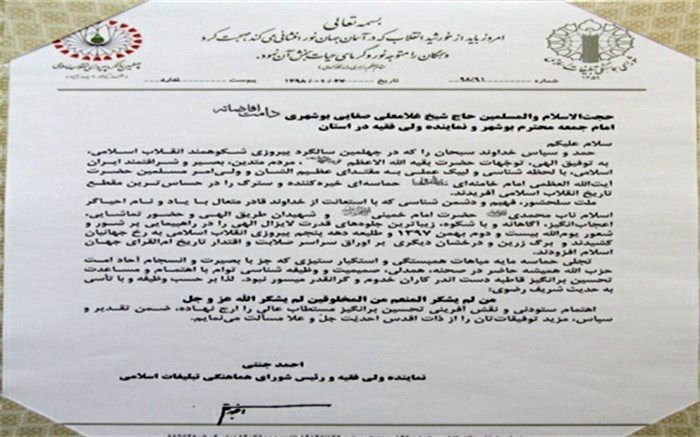 بسمه تعالی
امروز باید از خورشید انقلاب که در آسمان جهان نور افشانی می کند، صحبت کرد
و همگان را متوجه نور و گرمای حیات بخش آن نمود.
شماره ۹۸/۹۱ تاریخ پیوست
حجت‌الاسلام والمسلمین حاج شیخ غلامعلی صفایی بوشهری دامت افاضاته
امام جمعه محترم بوشهر و نماینده ولی فقیه در استان
سلام علیکم
حمد و سپاس خداوند سبحان را که در چهلمین سالگرد پیروزی شکوهمند انقلاب اسلامی،
به توفیق الهی، توجهات حضرت بقیه الله الاعظم مردم متدین، بصیر و شرافتمند ایران
اسلامی، با لحظه شناسی و لبیک عملی به مقتدای عظیم الشان و ولی‌امر مسلمین حضرت
آیت‌الله العظمی امام خامنه‌ای حماسه‌ای خیره‌کننده و سترگ را در حساس ترین مقطع
تاریخ انقلاب اسلامی آفریدند.
ملت سلحشور، فهیم و دشمن شناسی که با استعانت از خداوند قادر متعال با یاد و نام احیاگر
اسلام ناب محمدی حضرت امام خمینی و شهیدان طریق الهی و حضور تماشایی،
اعجاب‌انگیز، آگاهانه و با شکوه، زیباترین جلوه‌های قدرت لایزال الهی را در راهپیمایی پر شور و
شعور یوم‌الله بیست و دوم بهمن ۱۳۹۷ و طلیعه دهه پنجم پیروزی انقلاب اسلامی به رخ جهانیان
کشیدند و برگ زرین و درخشان دیگری بر اوراق سراسر صلابت و اقتدار تاریخ ام‌القرای جهان
اسلام افزودند.
تجلی حماسه مایه مباهات همیستگی و استکبار ستیزی که جز با بصیرت و انسجام آحاد امت
حزب الله همیشه حاضر در صحنه، همدلی، صمیمیت و وظیفه شناسی توام با اهتمام و مساعدت
تحسین برانگیز قاطبه دست اندر کاران خدوم و گرانقدر میسور نبود. لذا بر حسب وظیفه و با تأسی
به حدیث شریف رضوی:
من لم یشکر المنعم من المخلوقین لم یشکر الله عز و جل
اهتمام ستودنی و نقش آفرینی تحسین برانگیز مستطاب عالی را ارج نهاده، ضمن تقدیر و
سپاس، مزید توفیقات‌تان را از ذات اقدس احدیّت جلّ و علا مسألت می‌نمایم.
احمد جنتی
نماینده ولی فقیه و رئیس شورای هماهنگی تبلیغات اسلامی